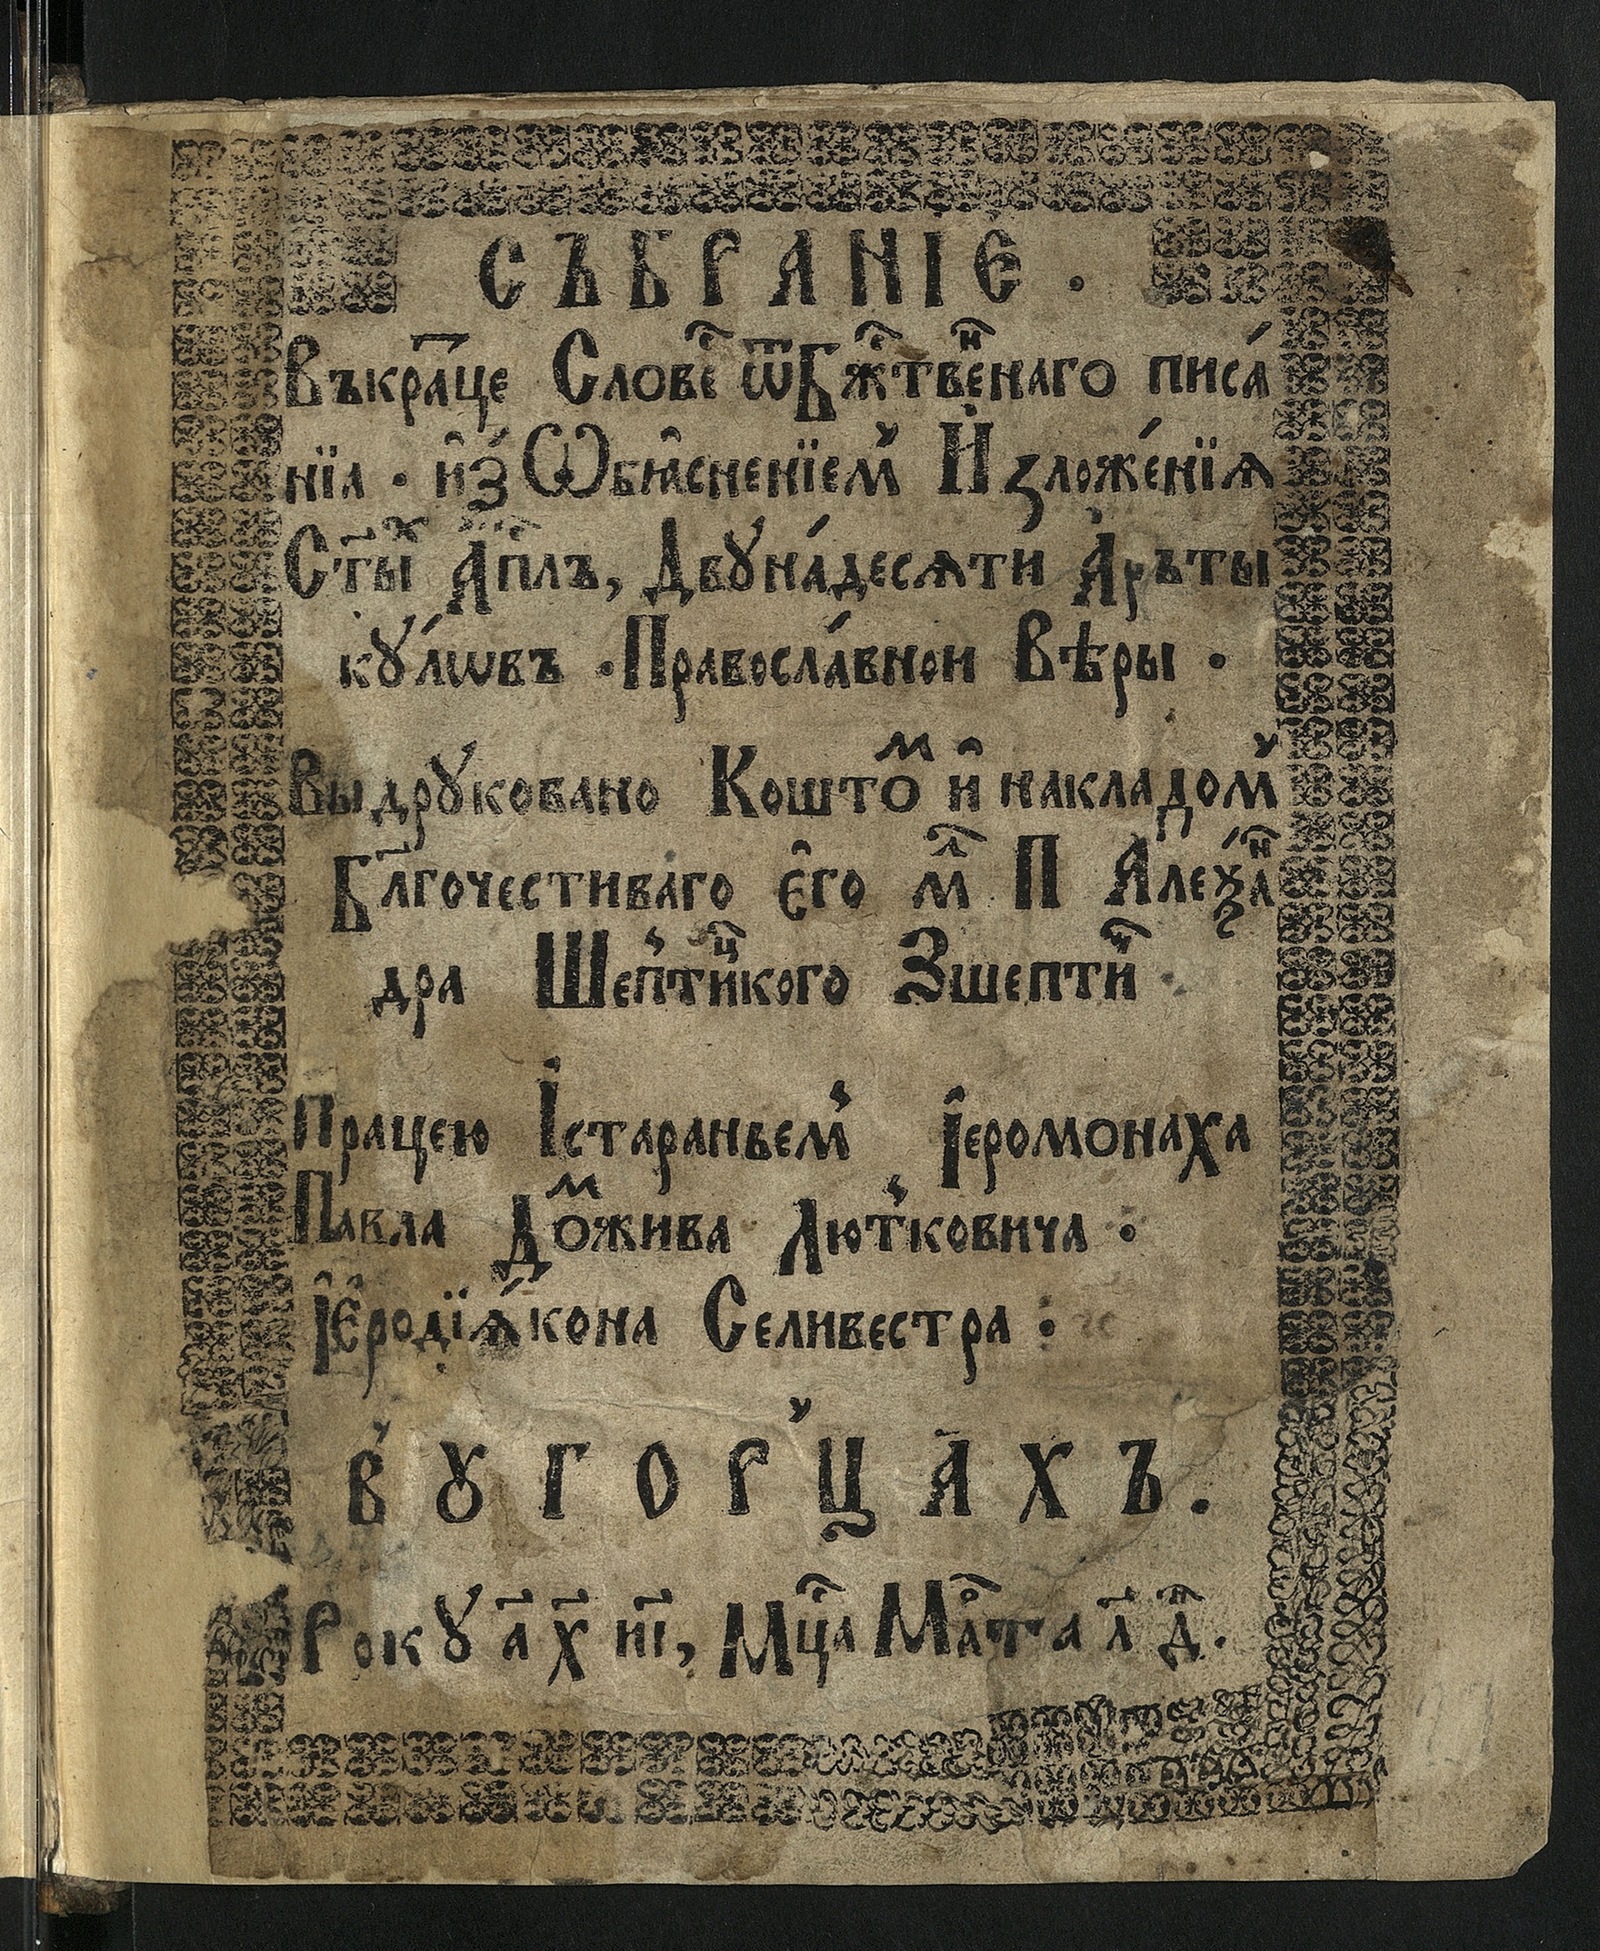 СЪБРАНІЕ .
Въкра҃це Слове҇ ѿ Бж҇твен҇наго писа́
нїа . и҆з̾ Ѡбꙗсненїем̾ И҆зложе́нїѧ
Ст҃ы́х А҆п҇лъ, Двꙋна́десѧти А҆ръты
кꙋ́лѡвъ . Правосла́внои Вѣры .
Выдрꙋковано Коштоⷨ и҆ накладом̾
Бл҃гочестиваго е҆го мⷧ҇ П Алеѯаⷩ҇
дра Шеп̾тиⷰ҇кого Зшептиⷱ҇ .
Працею Істараньем̾ і҆еромонаха
Павла Доⷨжива Лют̾ковича :
і҆е҆родїѧ́кона Селивестра :
в̾ ꙋ г о р̾ ц а х ъ .
Рокꙋ а҃ х҃ иі҃, Мц҇а Маⷬ҇та л҃ дⷩ҇ .